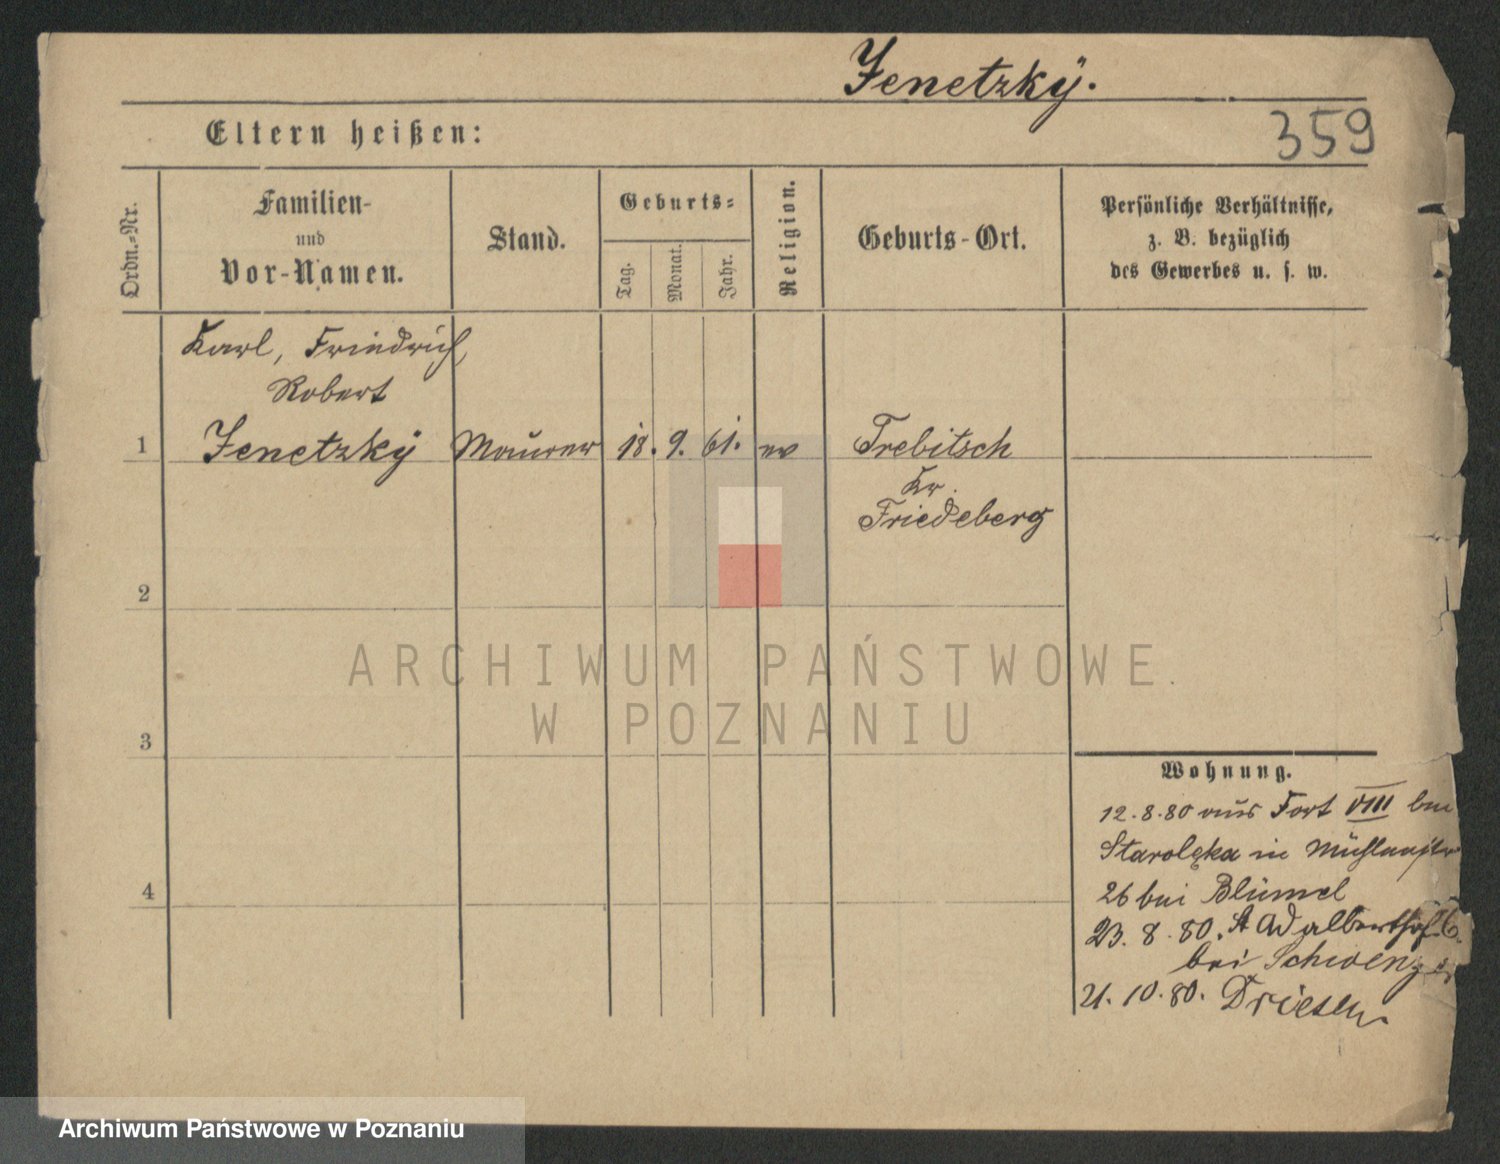 Jenetzkÿ.
359
Eltern heißen:
Ordn.-Nr.
Familien-
und
Vor-Namen.
Stand.
Geburts-
Tag.
Monat.
Jahr.
Religion.
Geburts-Ort.
Persönliche Verhältnisse,
z. B. bezüglich
des Gewerbes u. s. w.
Karl, Friedrich,
Robert
1 Jenetzkÿ Maurer 18. 9. 61. ev Trebitsch
Kr.
Friedeberg
2
3
4
Wohnung.
12.8.80 aus Fort VIII bei
Starolęka in
26 bei Blümel
23. 8. 80. St Adalbertstr. 6.
bei
21. 10. 80. Driesen
ARCHIWUM PAŃSTWOWE
W POZNANIU
Archiwum Państwowe w Poznaniu